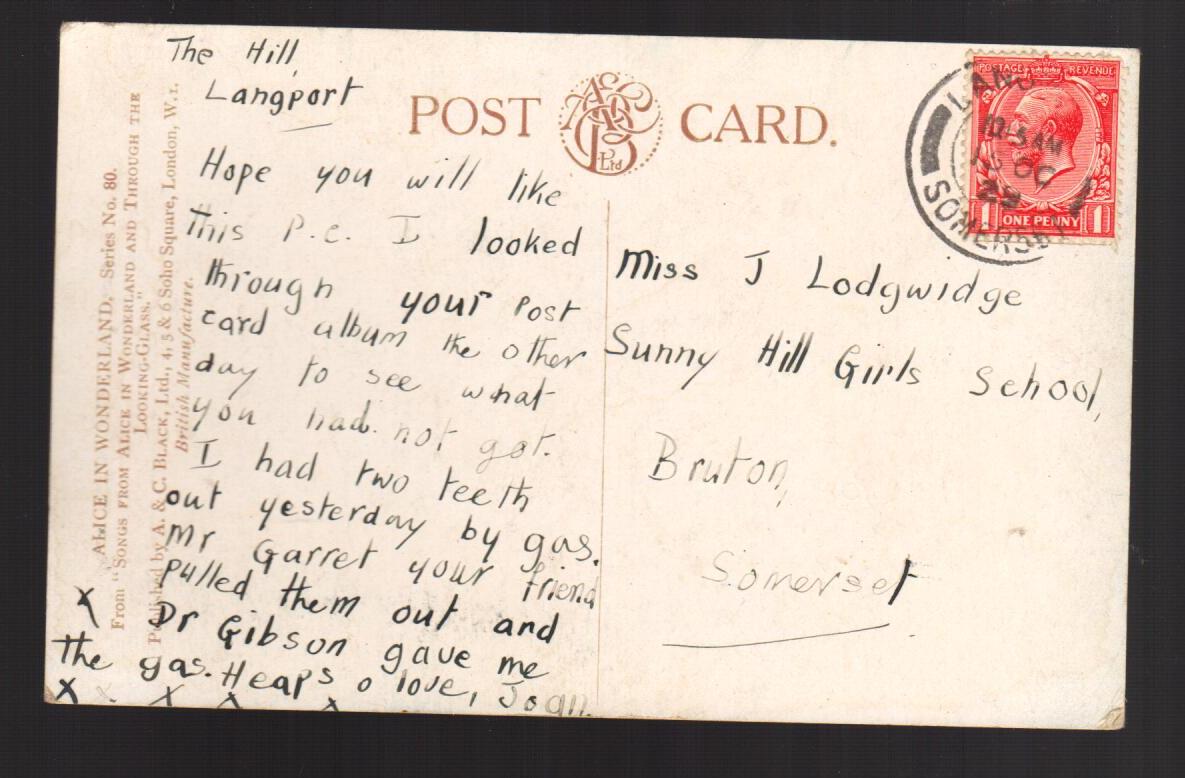 The Hill
Langport
POST CARD.
A & C B Ltd
POSTAGE REVENUE
1 ONE PENNY 1
10.15 AM
OC
SOMERSET
Hope you will like
this P.C. I looked
through your Post
card album the other
day to see what
you had not got.
I had two teeth
out yesterday by gas.
Mr Garret your friend
pulled them out and
Dr Gibson gave me
the gas. Heaps o love, Joan.
x
x x x x x
Miss J Lodgwidge
Sunny Hill Girls School,
Bruton,
Somerset
ALICE IN WONDERLAND. Series No. 80.
From "SONGS FROM ALICE IN WONDERLAND AND THROUGH THE
LOOKING-GLASS."
Published by A. & C. BLACK, Ltd., 4, 5 & 6 Soho Square, London, W.1.
British Manufacture.